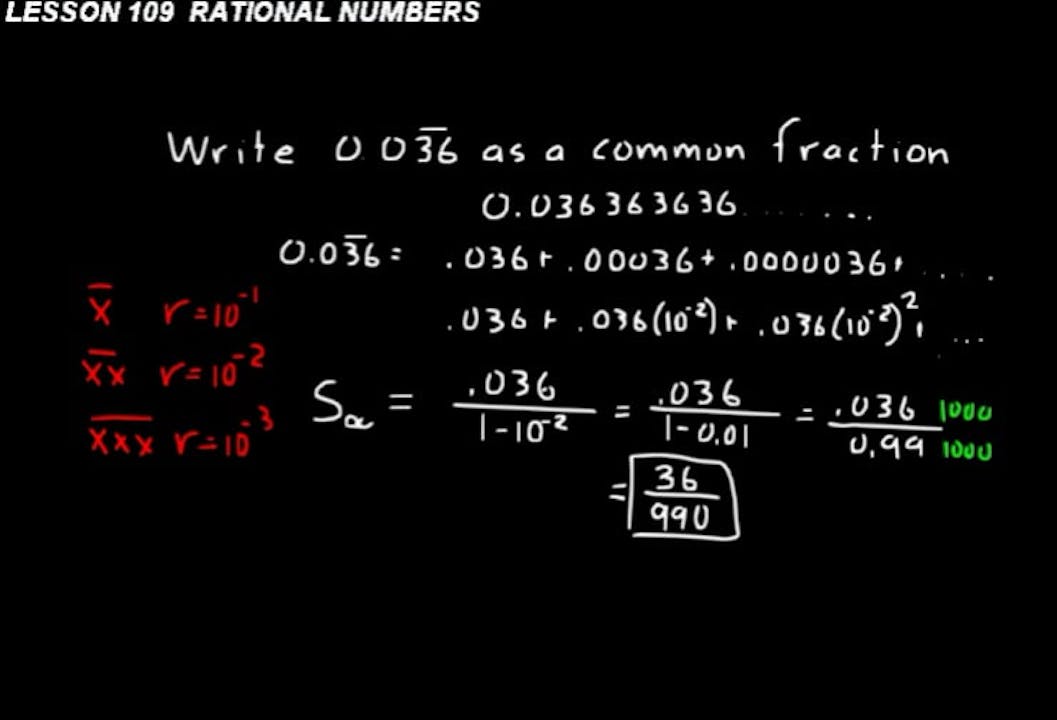 LESSON 109 RATIONAL NUMBERS
Write 0.03̅6̅ as a common fraction
0.036363636.......
0.03̅6̅ = .036 + .00036 + .0000036 + ....
x̅ r = 10⁻¹
.036 + .036(10⁻²) + .036(10⁻²)² + ...
x̅x̅ r = 10⁻²
S∝ = .036/(1-10⁻²) = .036/(1-0.01) = .036/0.99 1000/1000
x̅x̅x̅ r = 10⁻³
= 36/990